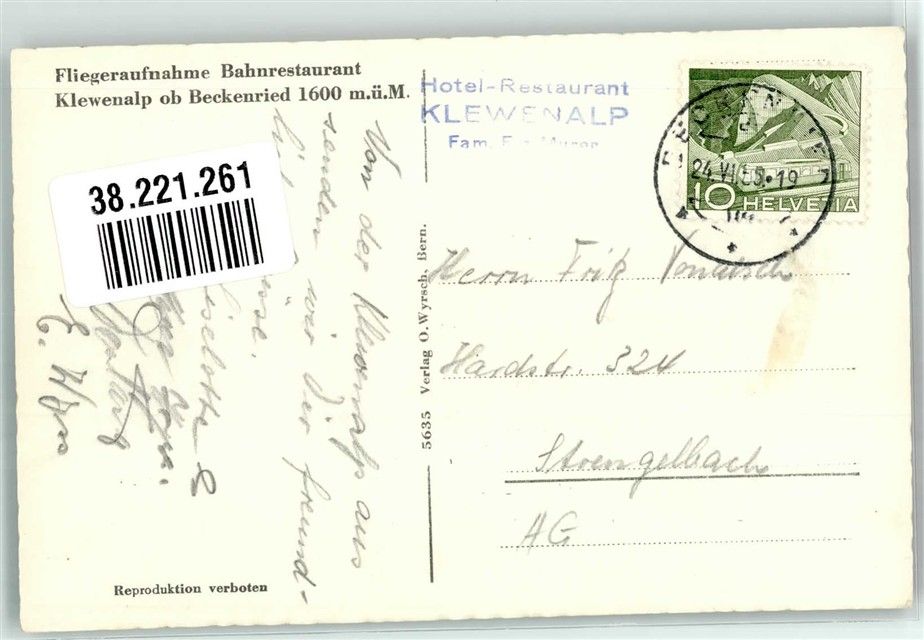 Fliegeraufnahme Bahnrestaurant
Klewenalp ob Beckenried 1600 m.ü.M.
Hotel-Restaurant
KLEWENALP
Fam.
38.221.261
10 HELVETIA
24.VI.5 -19
Von der Klewenalp aus
senden wir Dir freund-
liche
Liselotte &
5635 Verlag O. Wyrsch, Bern.
Herrn Fritz
Hardstr. 324
Strengelbach
AG
Reproduktion verboten